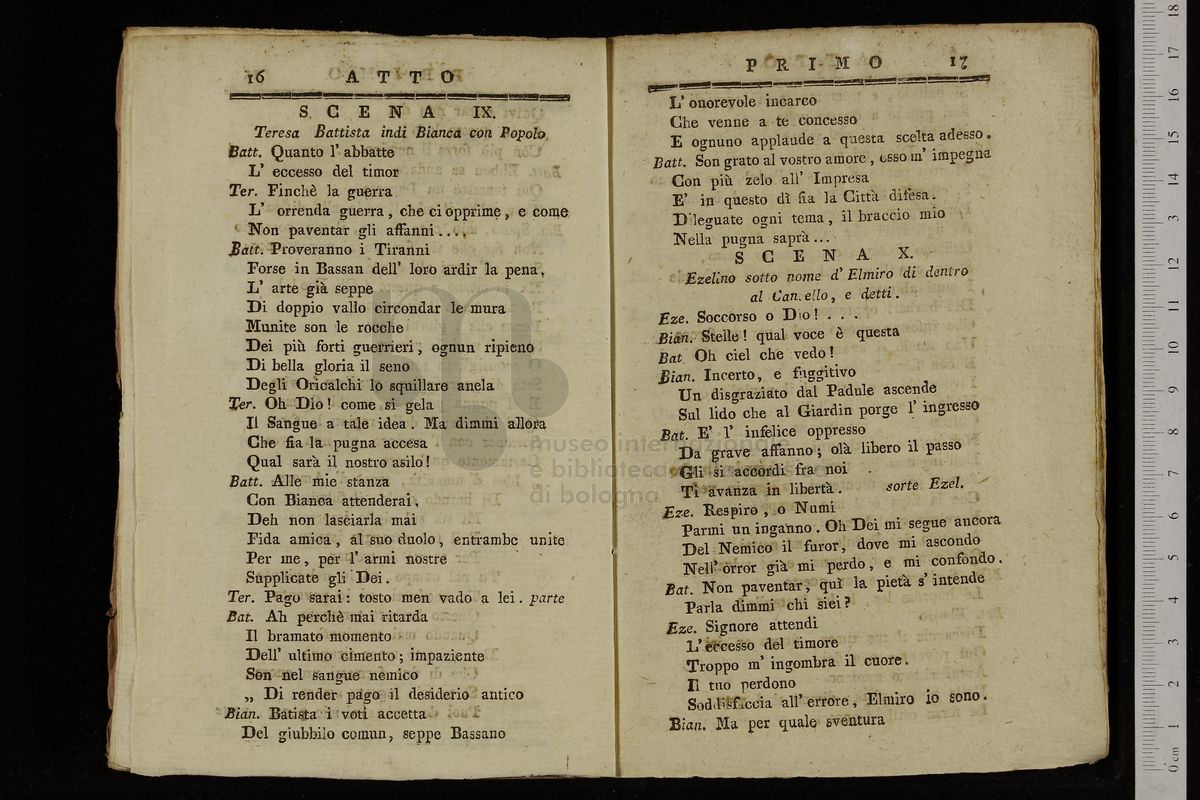 16 ATTO
SCENA IX.
Teresa Battista indi Bianca con Popolo
Batt. Quanto l' abbatte
L' eccesso del timor
Ter. Finchè la guerra
L' orrenda guerra, che ci opprime, e come
Non paventar gli affanni....
Batt. Proveranno i Tiranni
Forse in Bassan dell' loro ardir la pena,
L' arte già seppe
Di doppio vallo circondar le mura
Munite son le rocche
Dei più forti guerrieri, ognun ripieno
Di bella gloria il seno
Degli Oricalchi lo squillare anela
Ter. Oh Dio! come si gela
Il Sangue a tale idea. Ma dimmi allora
Che fia la pugna accesa
Qual sarà il nostro asilo!
Batt. Alle mie stanza
Con Bianca attenderai,
Deh non lasciarla mai
Fida amica, al suo duolo, entrambe unite
Per me, per l' armi nostre
Supplicate gli Dei.
Ter. Pago sarai: tosto men vado a lei. parte
Bat. Ah perchè mai ritarda
Il bramato momento
Dell' ultimo cimento; impaziente
Son nel sangue nemico
„ Di render pago il desiderio antico
Bian. Batista i voti accetta
Del giubbilo comun, seppe Bassano
PRIMO 17
L' onorevole incarco
Che venne a te concesso
E ognuno applaude a questa scelta adesso.
Batt. Son grato al vostro amore, esso m' impegna
Con più zelo all' Impresa
E' in questo dì fia la Città difesa.
Dileguate ogni tema, il braccio mio
Nella pugna saprà...
SCENA X.
Ezelino sotto nome d' Elmiro di dentro
al Cancello, e detti.
Eze. Soccorso o Dio! . . .
Bian. Stelle! qual voce è questa
Bat. Oh ciel che vedo!
Bian. Incerto, e fuggitivo
Un disgraziato dal Padule ascende
Sul lido che al Giardin porge l' ingresso
Bat. E' l' infelice oppresso
Da grave affanno; olà libero il passo
Gli si accordi fra noi
Ti avanza in libertà. sorte Ezel.
Eze. Respiro, o Numi
Parmi un inganno. Oh Dei mi segue ancora
Del Nemico il furor, dove mi ascondo
Nell' orror già mi perdo, e mi confondo.
Bat. Non paventar, quì la pietà s' intende
Parla dimmi chi siei?
Eze. Signore attendi
L' eccesso del timore
Troppo m' ingombra il cuore.
Il tuo perdono
Soddisfaccia all' errore, Elmiro io sono.
Bian. Ma per quale sventura
museo internazionale
e biblioteca
di bologna
0 cm 1 2 3 4 5 6 7 8 9 10 11 12 13 14 15 16 17 18